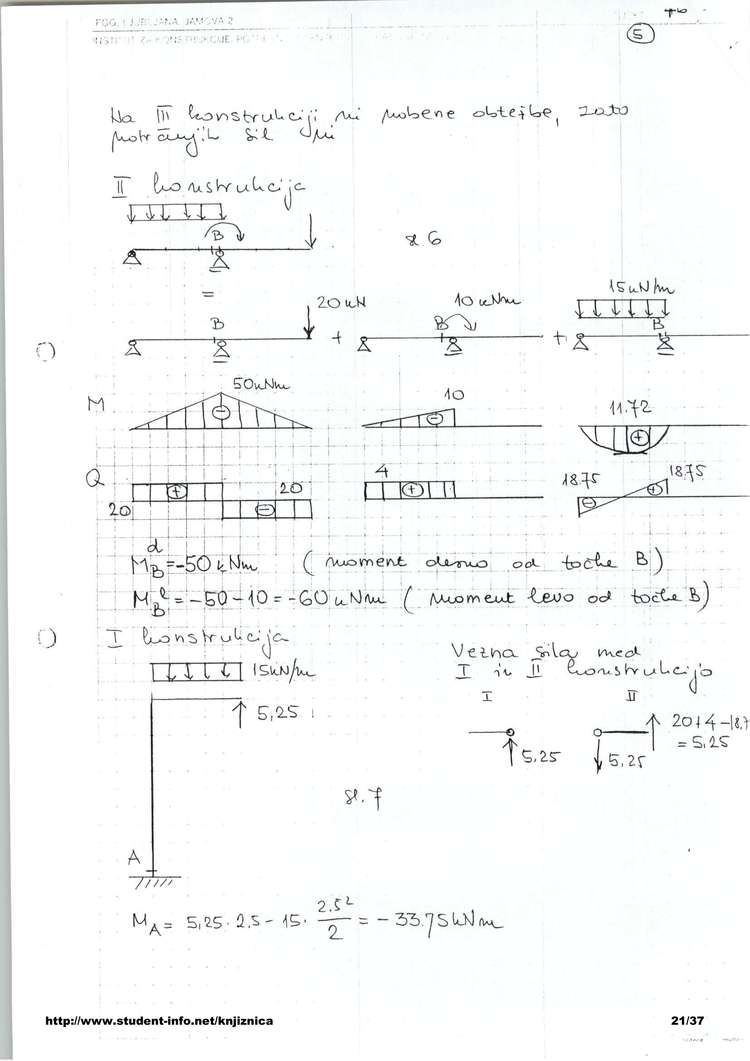 FGG, LJUBLJANA, JAMOVA 2
5
Na III konstrukciji ni nobene obtežbe, zato
notranjih sil ni
II konstrukcija
B
sl. 6
=
20 kN
10 kNm
15 kN/m
B
+
B
+
B
M
50 kNm
⊖
10
⊖
11.72
⊕
Q
20
⊕
20
⊖
4
⊕
18.75
⊖
⊕
18.75
M_B^d = -50 kNm (moment desno od točke B)
M_B^l = -50 - 10 = -60 kNm (moment levo od točke B)
I konstrukcija
15 kN/m
5,25
Vezna sila med
I in II konstrukcijo
I
II
5,25
5,25
20+4-18.7
= 5,25
sl. 7
A
M_A = 5,25 · 2.5 - 15 · 2.5²/2 = - 33.75 kNm
http://www.student-info.net/knjiznica
21/37